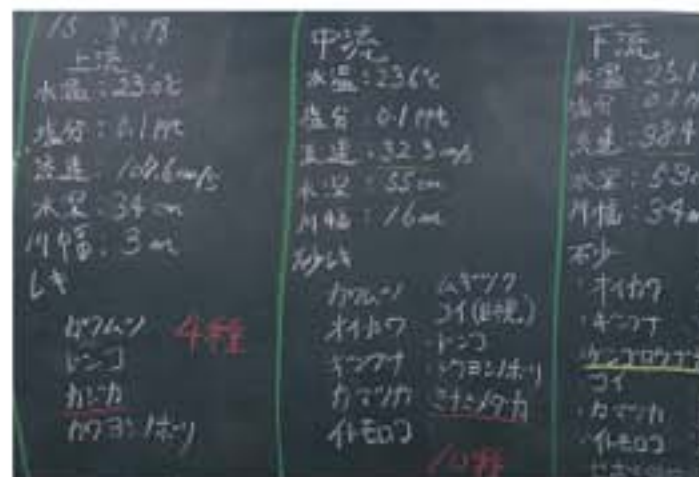 15.8.18
上流
水温:23.0℃
塩分:0.1ppt
流速:108.6cm/s
水深:34cm
川幅:3m
レキ
カワムツ
ドンコ
カジカ
カワヨシノボリ
4種
中流
水温:23.6℃
塩分 0.1ppt
流速:32.3m/s
水深:55cm
川幅:16m
砂レキ
カワムツ
オイカワ
ギンブナ
カマツカ
イトモロコ
ムギツク
コイ(目視)
ドンコ
カワヨシノボリ
ミナミメダカ
10種
下流
水温:25.1
塩分:0.1
流速:38.9
水深:53c
川幅:34m
砂
・オイカワ
・ギンブナ
・ゲンゴロウブナ
コイ
・カマツカ
・イトモロコ